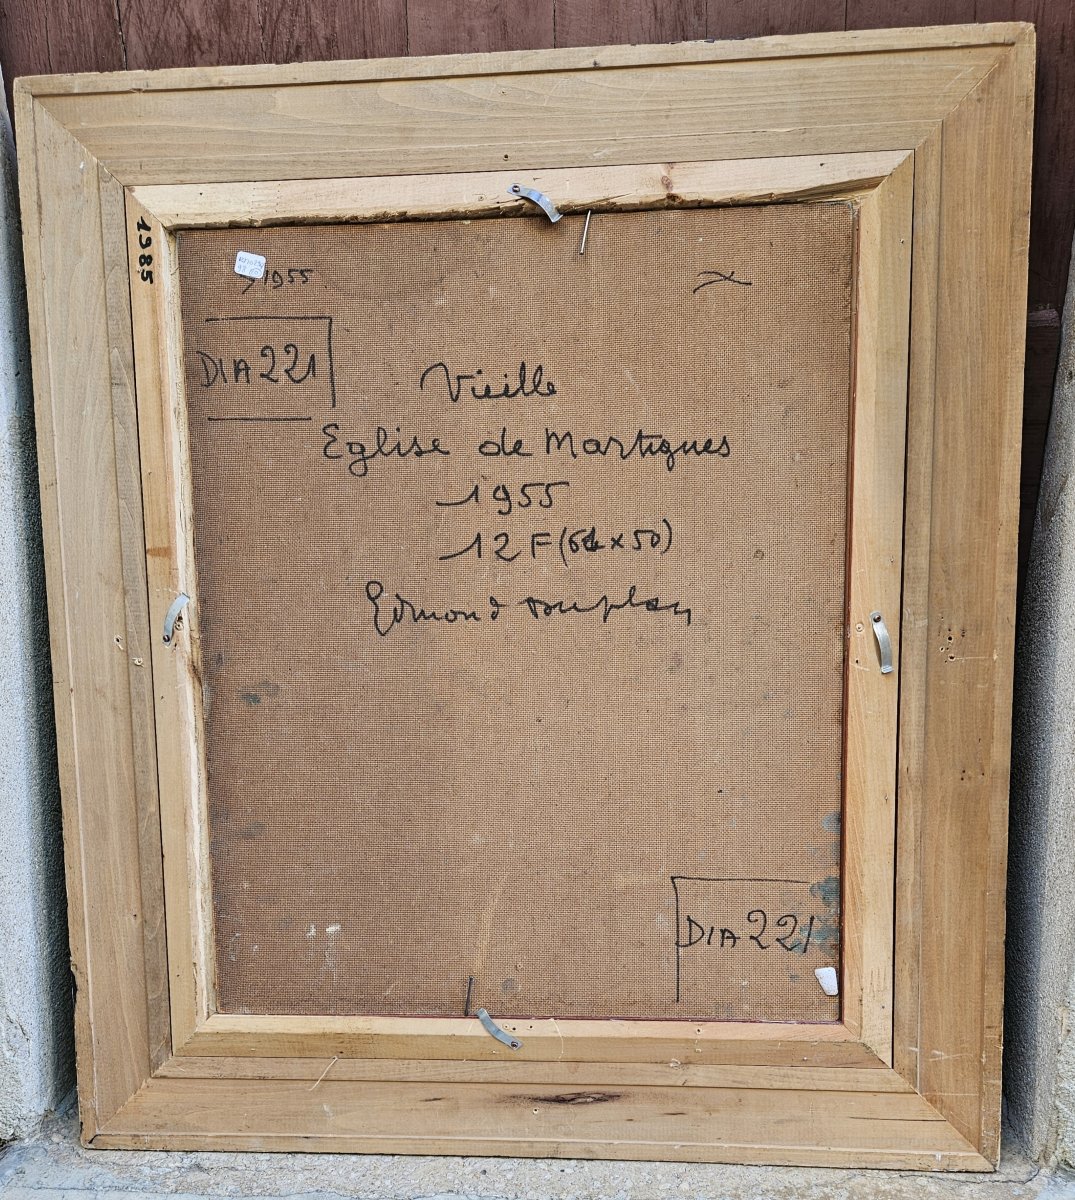 1985
1955
DIA 221
Vieille
Eglise de Martigues
1955
12 F (61 x 50)
Edmond Duplan
DIA 221